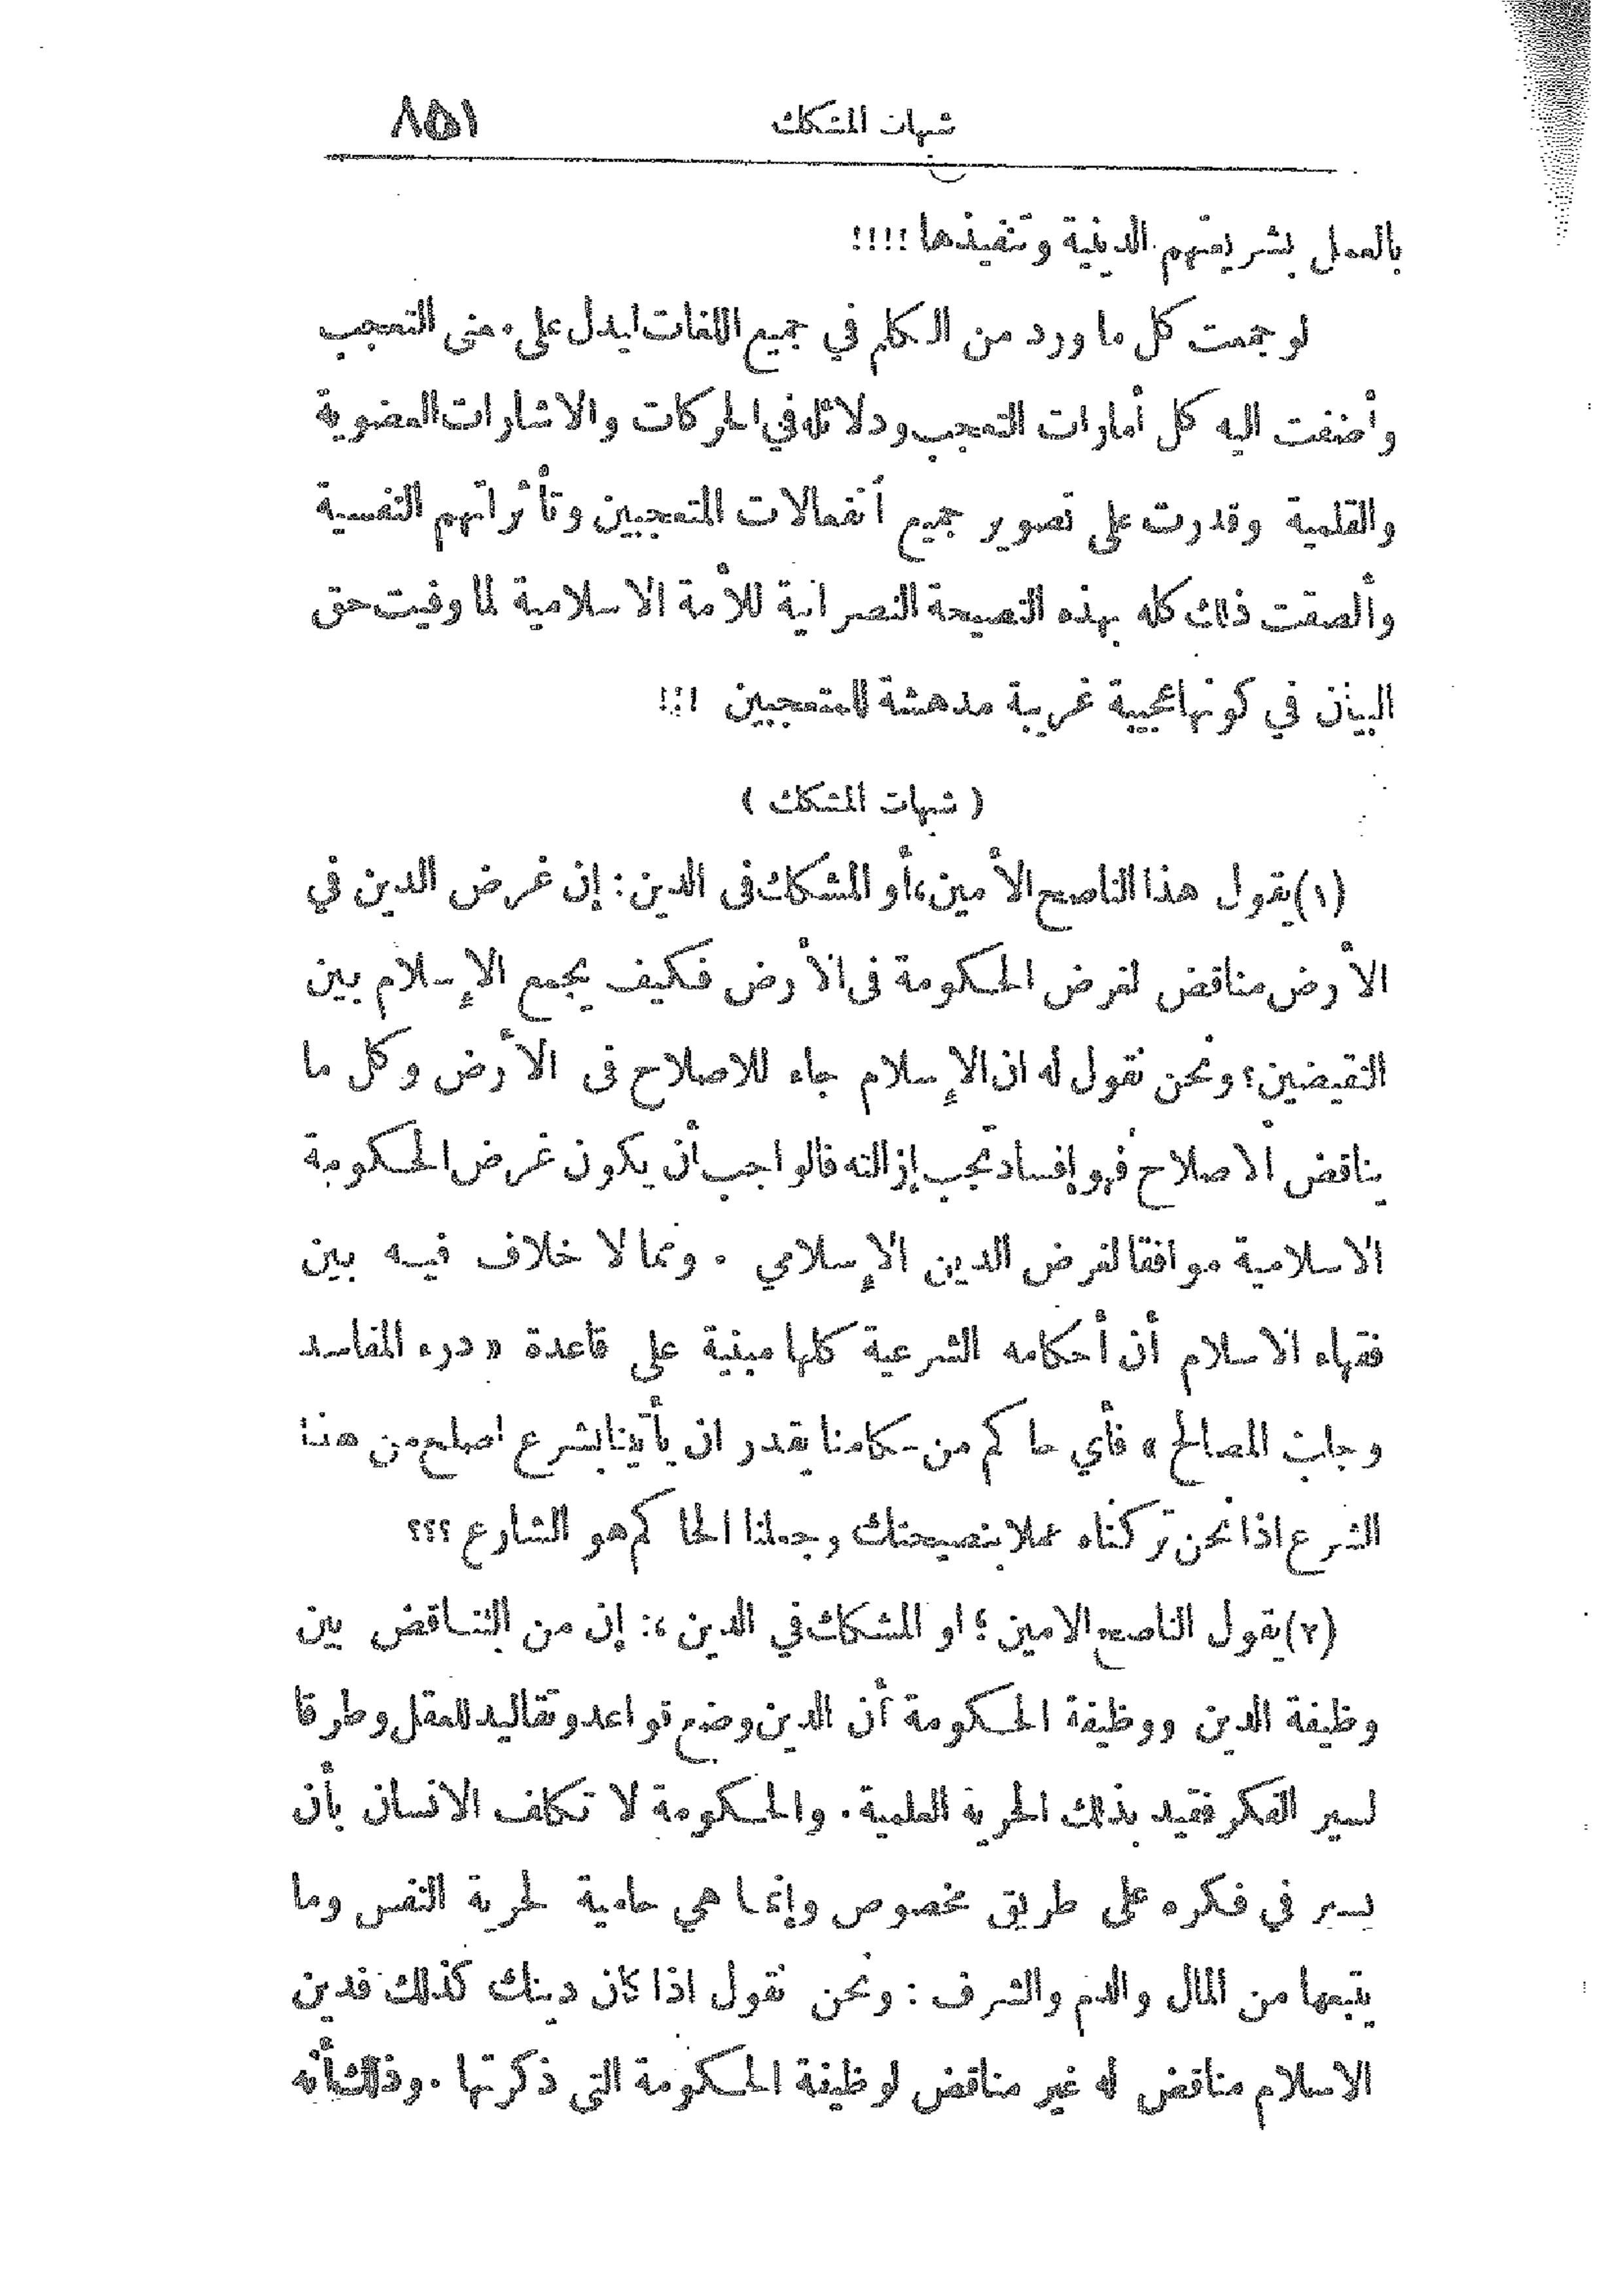 شبهات المشكك ٨٥١
بالعمل بشريعتهم الدينية وتنفيذها !!!!
لو جمعت كل ما ورد من الكلم في جميع اللغات ليدل على معنى التعجب
وأضفت اليه كل أمارات التعجب ودلائله في الحركات والاشارات العضوية
والقلمية وقدرت على تصوير جميع أنفعالات المتعجبين وتأثراتهم النفسية
وألصقت ذلك كله بهذه النصيحة النصرانية للأمة الاسلامية لما وفيت حق
البيان في كونها عجيبة غريبة مدهشة للمتعجبين !!!
( شبهات المشكك )
(١) يقول هذا الناصح الأمين، أو المشكك فى الدين : إن غرض الدين في
الأرض مناقض لغرض الحكومة فى الأرض فكيف يجمع الإسلام بين
النقيضين؟ ونحن نقول له ان الإسلام جاء للاصلاح فى الأرض وكل ما
يناقض الاصلاح فهو إفساد تجب إزالته فالواجب أن يكون غرض الحكومة
الاسلامية موافقا لغرض الدين الإسلامي . ومما لا خلاف فيه بين
فقهاء الاسلام أن أحكامه الشرعية كلها مبنية على قاعدة « درء المفاسد
وجلب المصالح » فأي حاكم من حكامنا يقدر ان يأتينا بشرع اصلح من هذا
الشرع اذا نحن تركناه عملا بنصيحتك وجعلنا الحاكم هو الشارع ؟؟؟
(٢) يقول الناصح الامين ؛ او المشكك في الدين ،: إن من التناقض بين
وظيفة الدين ووظيفة الحكومة أن الدين وضع قواعد وتقاليد للعقل وطرقا
لسير الفكر فقيد بذلك الحرية العلمية . والحكومة لا تكلف الانسان بأن
يسير في فكره على طريق مخصوص وإنما هي حامية لحرية النفس وما
يتبعها من المال والدم والشرف : ونحن نقول اذا كان دينك كذلك فدين
الاسلام مناقض له غير مناقض لوظيفة الحكومة التى ذكرتها . وذلك أنه